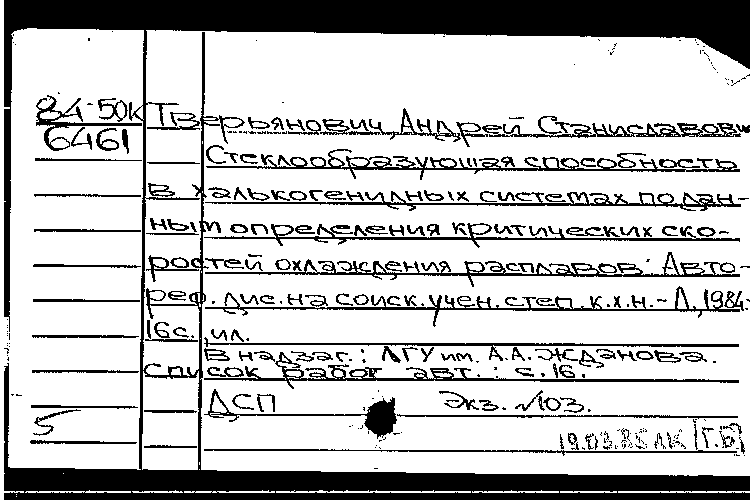 84-50К Тверьянович, Андрей Станиславович
6461
Стеклообразующая способность
в халькогенидных системах по дан-
ным определения критических ско-
ростей охлаждения расплавов: Авто-
реф. дис. на соиск. учен. степ. к.х.н. - Л., 1984.-
16с., ил.
В надзаг.: ЛГУ им. А.А.Жданова.
Список работ авт.: с.16.
ДСП Экз. №103.
5
19.03.85 ЛК [Г.Б]